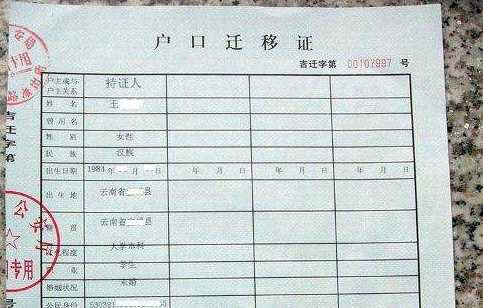 户口迁移证
吉迁字第 00107997 号
户主或与
户主关系 持证人
姓名 王
曾用名
性别 女性
民族 汉族
出生日期 1984 年 月 日 年 月 日 年 月 日 年 月 日
出生地 云南省 县
籍贯 云南省 县
程度 大学本科
业 学生
婚姻状况 未婚
公民身份
吉迁字第
专用